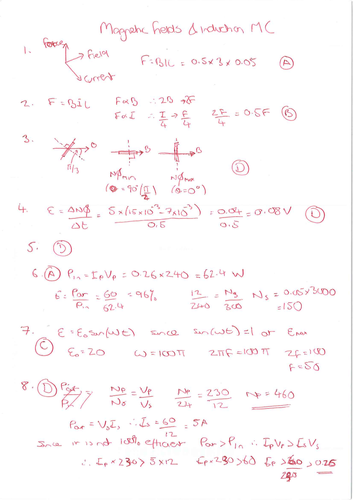 Magnetic fields & induction MC
1.
Force
Field
Current
F=BIL = 0.5×3×0.05 (A)
2. F=BIL F∝B ∴2B→2F
F∝I ∴ I/4→F/4 2F/4 = 0.5F (B)
3.
B B
π/3
Nφmin Nφmax
(θ=90°(π/2) (θ=0°)
(D)
4. ε = ΔNφ/Δt = 5×(15×10⁻³-7×10⁻³)/0.5 = 0.04/0.5 = 0.08V (D)
5. (D)
6 (A) Pin = IpVp = 0.26×240 = 62.4 W
E = Pout/Pin = 60/62.4 = 96% 12/240 = Ns/3000 Ns = 0.05×3000
=150
7. ε = ε₀sin(ωt) since sin(ωt)=1 at Emax
(C) ε₀=20 ω=100π 2πF=100π 2F=100
F=50
8. (D) Np/Ns = Vp/Vs Np/24 = 230/12 Np = 460
Pout = VsIs ∴ Is = 60/12 = 5A
Since it is not 100% efficient Pout > Pin ∴ IpVp > IsVs
∴ Ip×230 > 5×12 Ip×230>60 Ip > 60/230 > 0.26